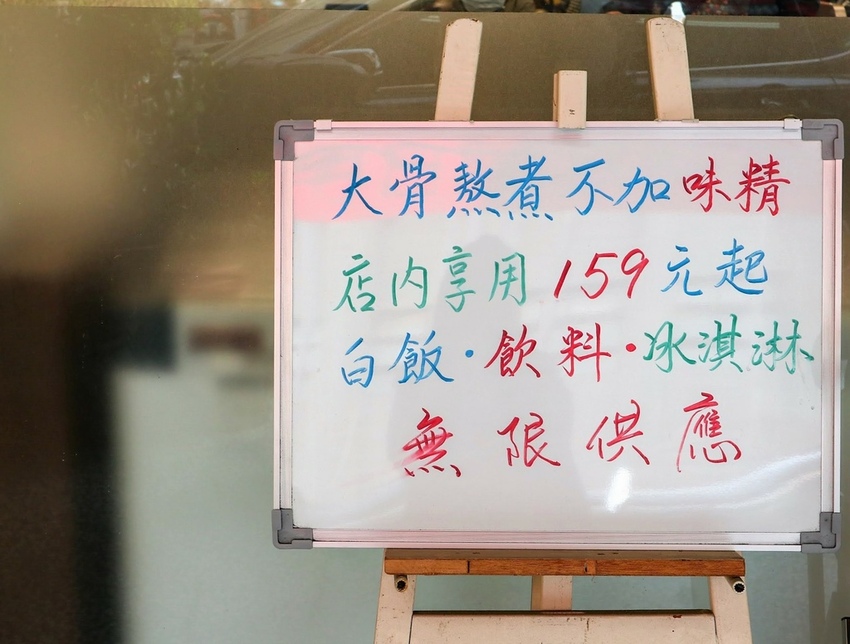 大骨熬煮不加味精
店內享用159元起
白飯·飲料·冰淇淋
無限供應